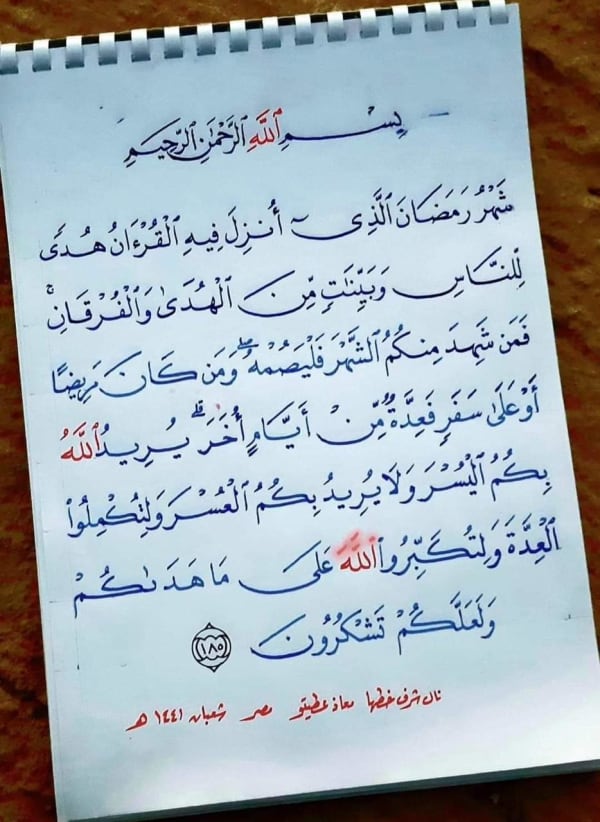 بِسْمِ ٱللَّهِ ٱلرَّحْمَٰنِ ٱلرَّحِيمِ
شَهْرُ رَمَضَانَ ٱلَّذِىٓ أُنزِلَ فِيهِ ٱلْقُرْءَانُ هُدًى
لِّلنَّاسِ وَبَيِّنَٰتٍ مِّنَ ٱلْهُدَىٰ وَٱلْفُرْقَانِ ۚ
فَمَن شَهِدَ مِنكُمُ ٱلشَّهْرَ فَلْيَصُمْهُ ۖ وَمَن كَانَ مَرِيضًا
أَوْ عَلَىٰ سَفَرٍ فَعِدَّةٌ مِّنْ أَيَّامٍ أُخَرَ ۗ يُرِيدُ ٱللَّهُ
بِكُمُ ٱلْيُسْرَ وَلَا يُرِيدُ بِكُمُ ٱلْعُسْرَ وَلِتُكْمِلُوا۟
ٱلْعِدَّةَ وَلِتُكَبِّرُوا۟ ٱللَّهَ عَلَىٰ مَا هَدَىٰكُمْ
وَلَعَلَّكُمْ تَشْكُرُونَ ١٨٥
نال شرف خطها معاذ عطيتو مصر شعبان ١٤٤١ هـ